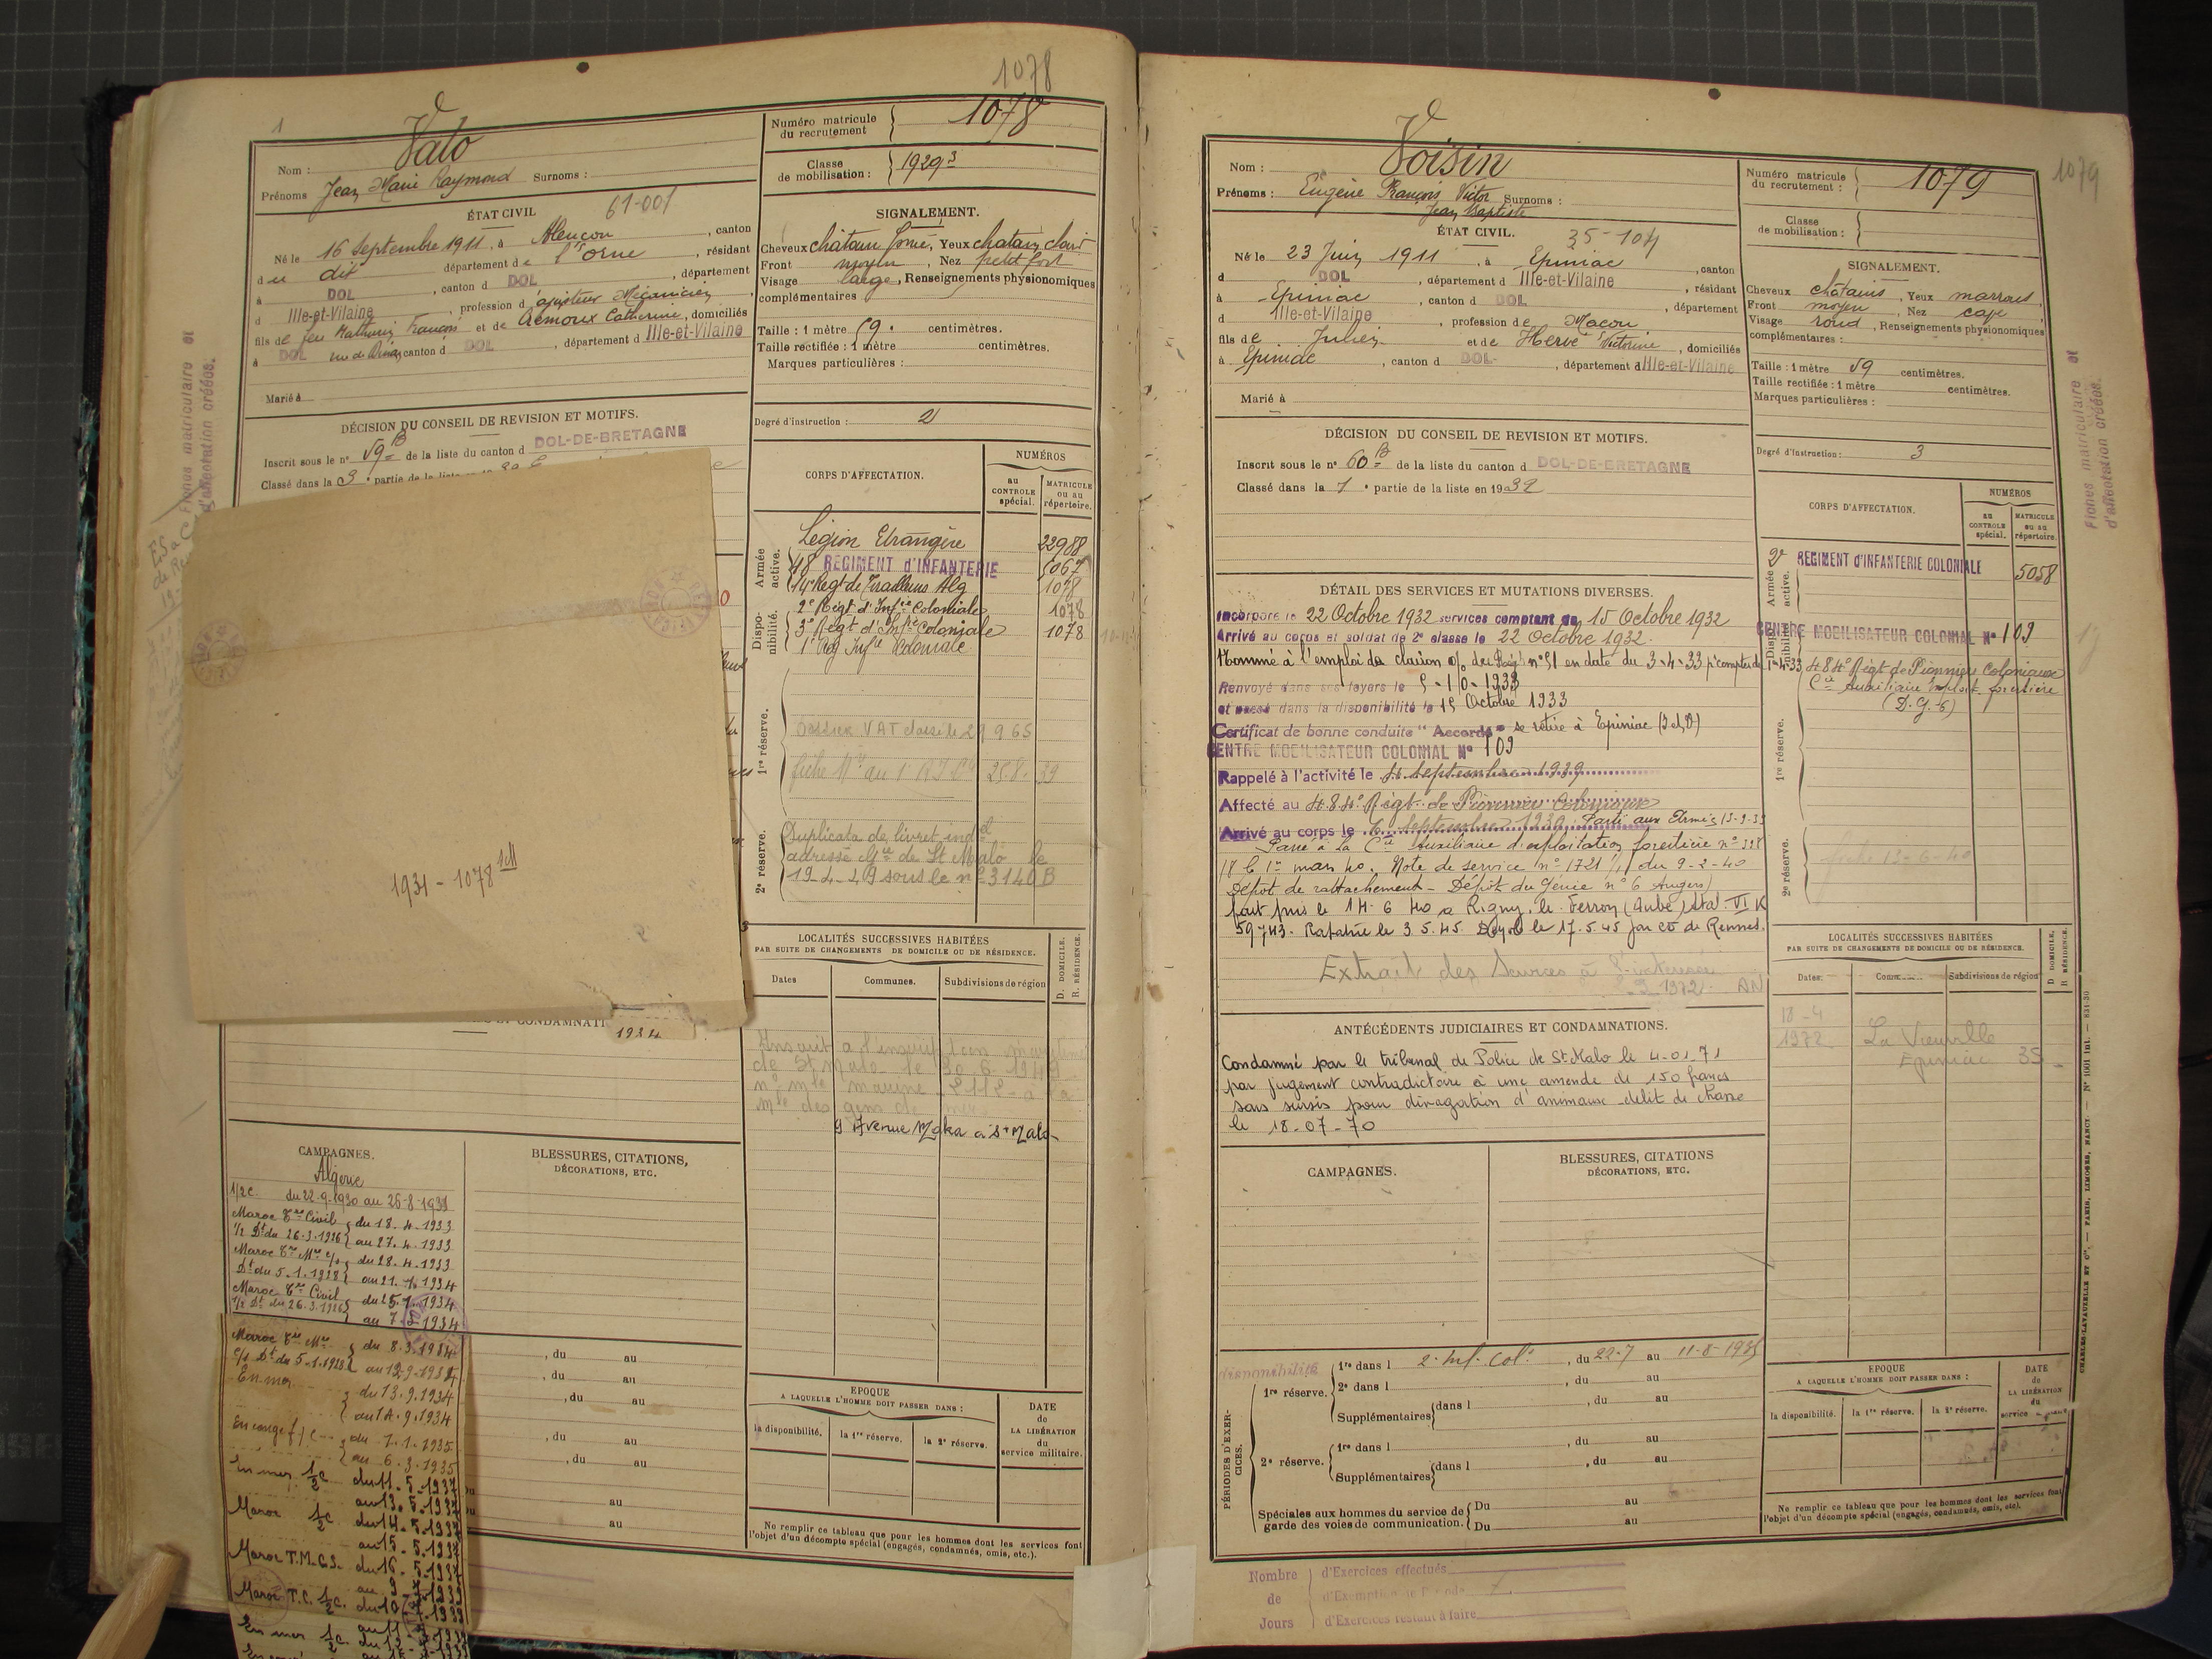 1078
1
Nom : Valo
Prénoms Jean Marie Raymond Surnoms :
Numéro matricule du recrutement 1078
Classe de mobilisation : 1929
ÉTAT CIVIL
61-001
Né le 16 Septembre 1911, à Alençon, canton
du dit département de l'Orne, résidant
à DOL, canton d DOL, département
d Ille-et-Vilaine, profession d'ajusteur Mécanicien
fils de feu Mathurin François et de Catherine, domiciliés
à DOL rue de canton d DOL, département d Ille-et-Vilaine
Marié à
SIGNALEMENT.
Cheveux châtain foncé, Yeux chatain clair
Front moyen, Nez petit fort
Visage large, Renseignements physionomiques
complémentaires
Taille : 1 mètre 59 centimètres.
Taille rectifiée : 1 mètre centimètres.
Marques particulières :
Degré d'instruction : 2
DÉCISION DU CONSEIL DE REVISION ET MOTIFS.
Inscrit sous le n° 59 B de la liste du canton d DOL-DE-BRETAGNE
Classé dans la 3e partie de la liste
Fiches matriculaire et
d'affectation créées.
1931 - 1078 SM
1934
CORPS D'AFFECTATION.
NUMÉROS
au CONTROLE spécial.
MATRICULE ou au répertoire.
Armée active.
Légion Etrangère 22988
48 REGIMENT d'INFANTERIE 6067
14e Regt de Tirailleurs Alg 1078
Disponibilité.
2e Régt d'Infie Coloniale 1078
3e Régt d'Infie Coloniale 1078
1er Rég Infie Coloniale
1re réserve.
Dossier VAT classé le 29 9 65
fiche Mle au 1er RIC 25.8.39
2e réserve.
Duplicata de livret indel
adressé Gie de St Malo le
19-4-49 sous le n° 3140B
LOCALITÉS SUCCESSIVES HABITÉES
PAR SUITE DE CHANGEMENTS DE DOMICILE OU DE RÉSIDENCE.
D. DOMICILE.
R. RÉSIDENCE.
Dates Communes. Subdivisions de région
Inscrit à l'inscription maritime
de St Malo le 30.6.1949
n° mle marine 2112
mle des gens de mer
9 Avenue Moka à St Malo
CAMPAGNES.
Algérie
1/2 c. du 22.9.1930 au 26-8-1931
Maroc Tre Civil du 18.4.1933
1/2 Dt du 26.3.1926 au 27.4.1933
Maroc Tre Mre c/s du 28.4.1933
Dt du 5.1.1928 au 21.1.1934
Maroc Tre Civil du 25.1.1934
1/2 Dt du 26.3.1926 au 7.3.1934
Maroc Tre Mre du 8.3.1934
c/s Dt du 5.1.1928 au 12.9.1934
En mer du 13.9.1934
au 14.9.1934
En congé f/c du 7.1.1935
au 6.3.1935
En mer 1/2c du 11.5.1937
au 13.5.1937
Maroc 1/2c du 14.5.1937
au 15.5.1937
Maroc T.M.C.S. du 16.5.1937
au 9.7.1939
Maroc T.C. 1/2c. du 10.7.1939
En mer 1/2c.
BLESSURES, CITATIONS,
DÉCORATIONS, ETC.
, du au
, du au
, du au
, du au
, du au
au
au
EPOQUE
A LAQUELLE L'HOMME DOIT PASSER DANS :
la disponibilité. la 1re réserve. la 2e réserve.
DATE de LA LIBÉRATION du service militaire.
Ne remplir ce tableau que pour les hommes dont les services font
l'objet d'un décompte spécial (engagés, condamnés, omis, etc.).
1079
Nom : Voisin
Prénoms : Eugène François Victor Surnoms :
Jean Baptiste
Numéro matricule du recrutement : 1079
Classe de mobilisation :
ÉTAT CIVIL.
35-104
Né le 23 Juin 1911, à Epiniac, canton
d DOL, département d Ille-et-Vilaine, résidant
à Epiniac, canton d DOL, département
d Ille-et-Vilaine, profession de Maçon
fils de Julien et de Hervé Victorine, domiciliés
à Epiniac, canton d DOL, département d Ille-et-Vilaine
Marié à
SIGNALEMENT.
Cheveux châtains, Yeux marrons
Front moyen, Nez cave
Visage rond, Renseignements physionomiques
complémentaires :
Taille : 1 mètre 59 centimètres.
Taille rectifiée : 1 mètre centimètres.
Marques particulières :
Degré d'instruction : 3
DÉCISION DU CONSEIL DE REVISION ET MOTIFS.
Inscrit sous le n° 60 B de la liste du canton d DOL-DE-BRETAGNE
Classé dans la 1e partie de la liste en 1932
Fiches matriculaire et
d'affectation créées.
DÉTAIL DES SERVICES ET MUTATIONS DIVERSES.
Incorporé le 22 Octobre 1932 services comptant du 15 Octobre 1932
Arrivé au corps et soldat de 2e classe le 22 Octobre 1932
Nommé à l'emploi de clairon o/ du Rég n° 51 en date du 3-4-33 p. compter du 1-4-33
Renvoyé dans ses foyers le 5-10-1933
et passé dans la disponibilité le 15 Octobre 1933
Certificat de bonne conduite "Accordé" se retire à Epiniac (I et V)
CENTRE MOBILISATEUR COLONIAL N° 109
Rappelé à l'activité le Septembre 1939
Affecté au 484e Régt de Pionniers Coloniaux
Arrivé au corps le 6 Septembre 1939. Parti aux Armées 13-9-39
Passé à la Cie Auxiliaire d'exploitation forestière n° 328
/17 le 1er mars 40. Note de service n° 1721 1/1 du 9-2-40
Dépôt de rattachement - Dépôt du Génie n° 6 Angers)
fait pris le 14-6-40 à Rigny le Ferron (Aube) Stal VI K
59743. Rapatrié le 3.5.45. Démob le 17.5.45 par CD de Rennes.
Extrait des Services à l'intéressé
1972 AN
CORPS D'AFFECTATION.
NUMÉROS
au CONTROLE spécial.
MATRICULE ou au répertoire.
Armée active.
2e REGIMENT d'INFANTERIE COLONIALE 5058
Disponibilité.
CENTRE MOBILISATEUR COLONIAL N° 109
484e Régt de Pionniers Coloniaux
Cie Auxiliaire Exploit. forestière
(D.G.6)
1re réserve.
2e réserve.
fiche 13-6-40
ANTÉCÉDENTS JUDICIAIRES ET CONDAMNATIONS.
Condamné par le tribunal de Police de St Malo le 4-01-71
par jugement contradictoire à une amende de 150 francs
sans sursis pour divagation d'animaux - délit de chasse
le 18-07-70
LOCALITÉS SUCCESSIVES HABITÉES
PAR SUITE DE CHANGEMENTS DE DOMICILE OU DE RÉSIDENCE.
D. DOMICILE.
R. RÉSIDENCE.
Dates. Communes Subdivisions de région
18-4
1972 La Vieuville
Epiniac 35
CAMPAGNES.
BLESSURES, CITATIONS
DÉCORATIONS, ETC.
PÉRIODES D'EXERCICES.
disponibilité
1re réserve. 1re dans l 2e Inf. Cole, du 22-7 au 11-8-1935
2e dans l , du au
Supplémentaires dans l , du au
2e réserve. 1re dans l , du au
Supplémentaires dans l , du au
Spéciales aux hommes du service de Du au
garde des voies de communication. Du au
EPOQUE
A LAQUELLE L'HOMME DOIT PASSER DANS :
la disponibilité. la 1re réserve. la 2e réserve.
DATE de LA LIBÉRATION du service
Ne remplir ce tableau que pour les hommes dont les services font
l'objet d'un décompte spécial (engagés, condamnés, omis, etc).
Nombre d'Exercices effectués
de d'Exemption de Période
Jours d'Exercices restant à faire
CHARLES-LAVAUZELLE ET Cie. — PARIS, LIMOGES, NANCY. — N° 1001 Int. — 831-30